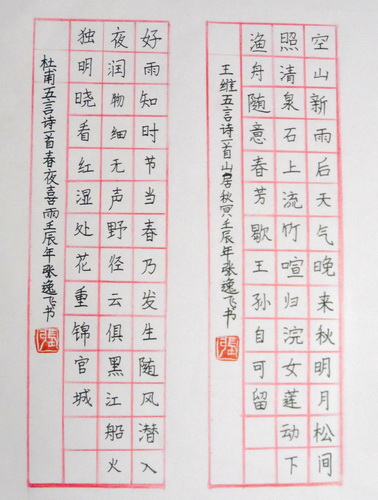 空山新雨后天气晚来秋明月松间
照清泉石上流竹喧归浣女莲动下
渔舟随意春芳歇王孙自可留
王维五言诗一首山居秋冥壬辰年张逸飞书
張
好雨知时节当春乃发生随风潜入
夜润物细无声野径云俱黑江船火
独明晓看红湿处花重锦官城
杜甫五言诗一首春夜喜雨壬辰年张逸飞书
張